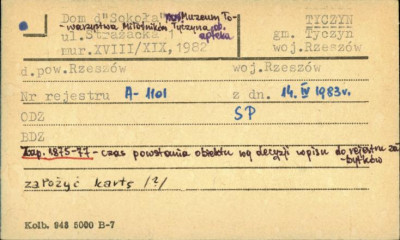 Dom d"Sokoła" ob. Muzeum To- TYCZYN
warzystwa Miłośników Tyczyna ob. apteka
ul. Strażacka gm. Tyczyn
mur.XVIII/XIX, 1982 woj.Rzeszów
d.pow.Rzeszów woj.Rzeszów
Nr rejestru A-1101 z dn. 14.IV 1983r.
ODZ SP
BDZ
1875-77 - czas powstania obiektu wg decyzji wpisu do rejestru za-
bytków
założyć kartę /?/
Kolb. 943 5000 B-7